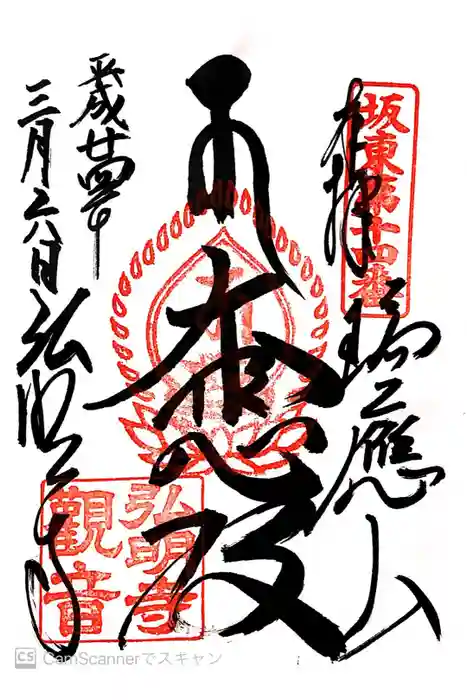 坂東第十四番
奉拝
瑞應山
大悲殿
平成廿四年
三月二八日
弘明寺
弘明寺
觀音
CS CamScannerでスキャン